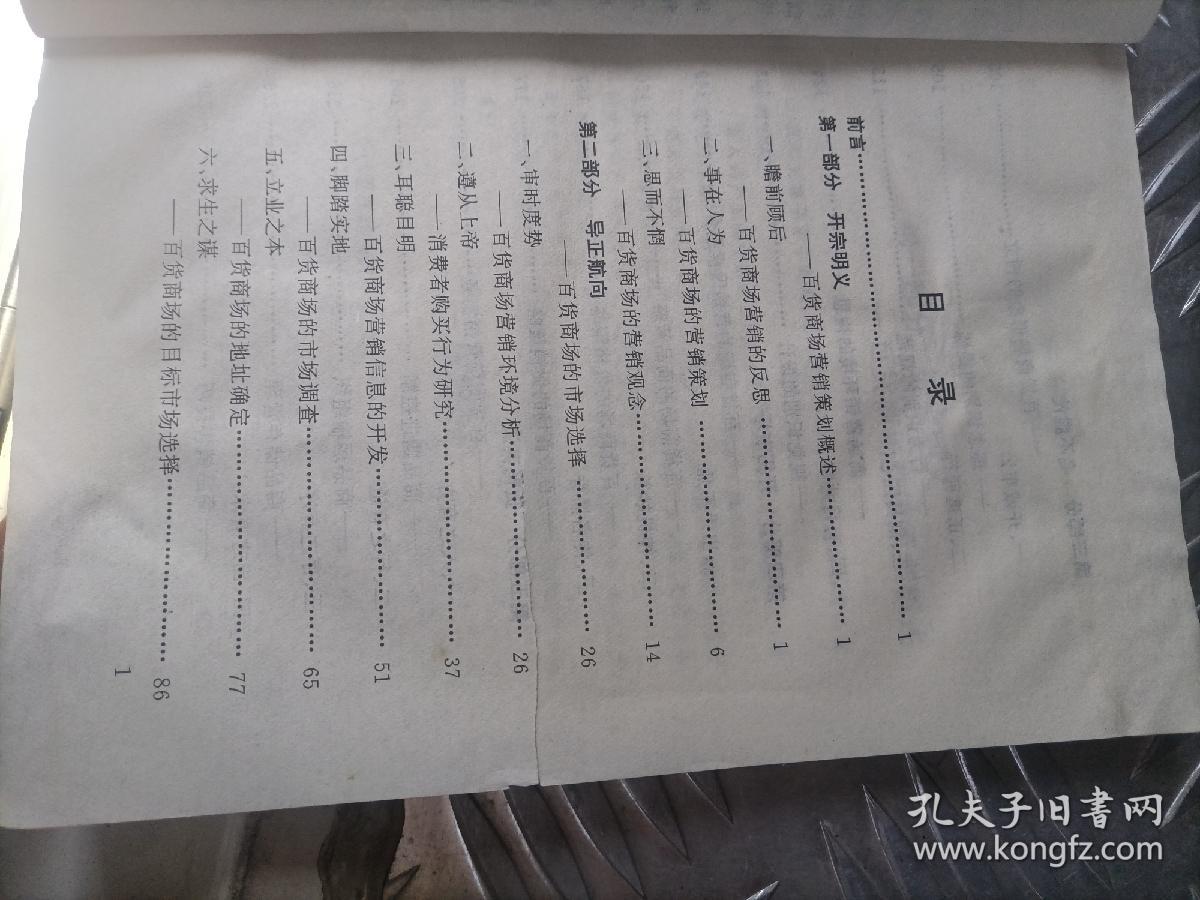 目 录
前言……………………………………………1
第一部分 开宗明义
——百货商场营销策划概述………………1
一、瞻前顾后
——百货商场营销的反思………………1
二、事在人为
——百货商场的营销策划………………6
三、思而不惘
——百货商场的营销观念………………14
第二部分 导正航向
——百货商场的市场选择………………26
一、审时度势
——百货商场营销环境分析………………26
二、遵从上帝
——消费者购买行为研究………………37
三、耳聪目明
——百货商场营销信息的开发………………51
四、脚踏实地
——百货商场的市场调查………………65
五、立业之本
——百货商场的地址确定………………77
六、求生之谋
——百货商场的目标市场选择………………86
1
孔夫子旧书网
www.kongfz.com